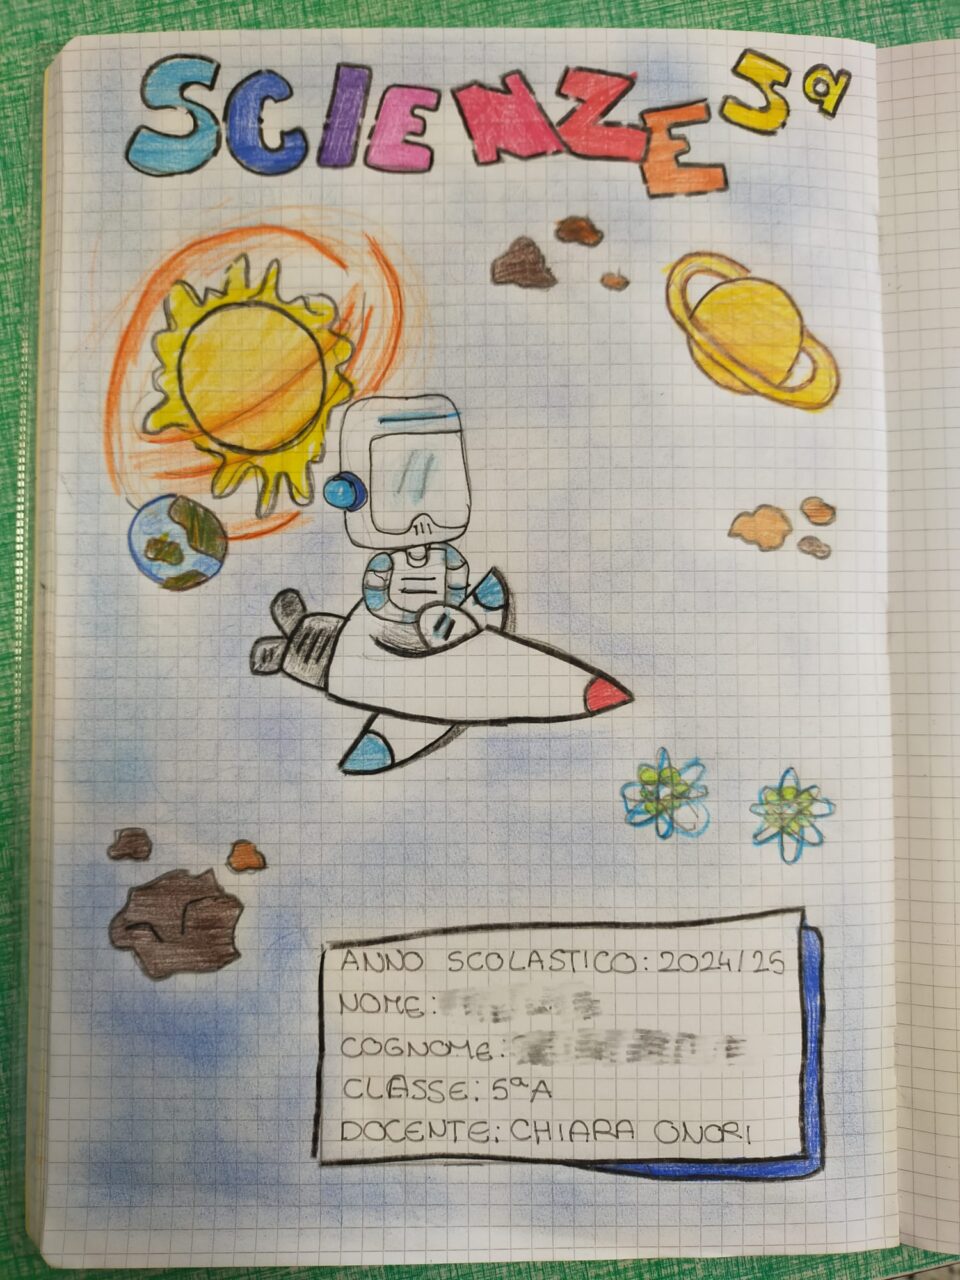 SCIENZE 5ª
ANNO SCOLASTICO: 2024/25
NOME:
COGNOME:
CLASSE: 5ªA
DOCENTE: CHIARA ONORI